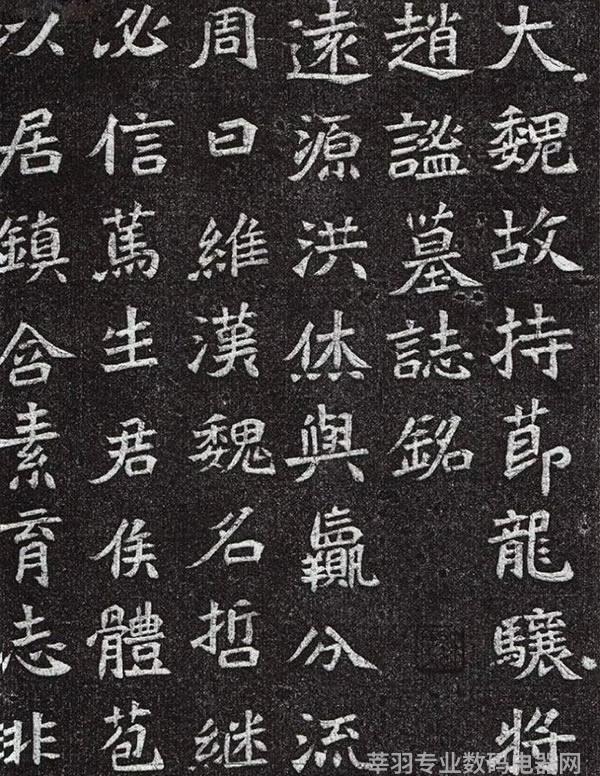 大魏故持莭龍驤將
趙謐墓誌銘
遠源洪烋與嬴分流
周曰維漢魏名哲継
必信萬生君侯體苞
以居鎮含素育志非
莘羽专业数码电器网